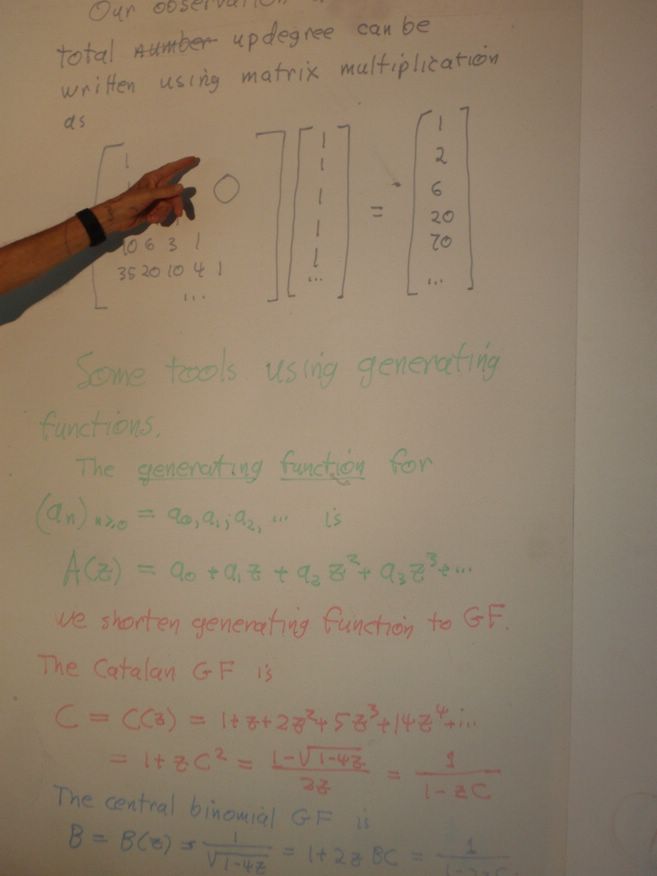 Our observation
total number updegree can be
written using matrix multiplication
as
1 1 1
1 2
O 1 6
1 = 20
10 6 3 1 1 70
35 20 10 4 1 ... ...
...
Some tools using generating
functions.
The generating function for
(an) n≥0 = a0, a1, a2, ... is
A(z) = a0 + a1 z + a2 z² + a3 z³ + ...
We shorten generating function to GF.
The Catalan GF is
C = C(z) = 1+z+2z²+5z³+14z⁴+...
= 1+zC² = (1-√(1-4z))/2z = 1/(1-zC)
The central binomial GF is
B = B(z) = 1/√(1-4z) = 1+2zBC = 1/